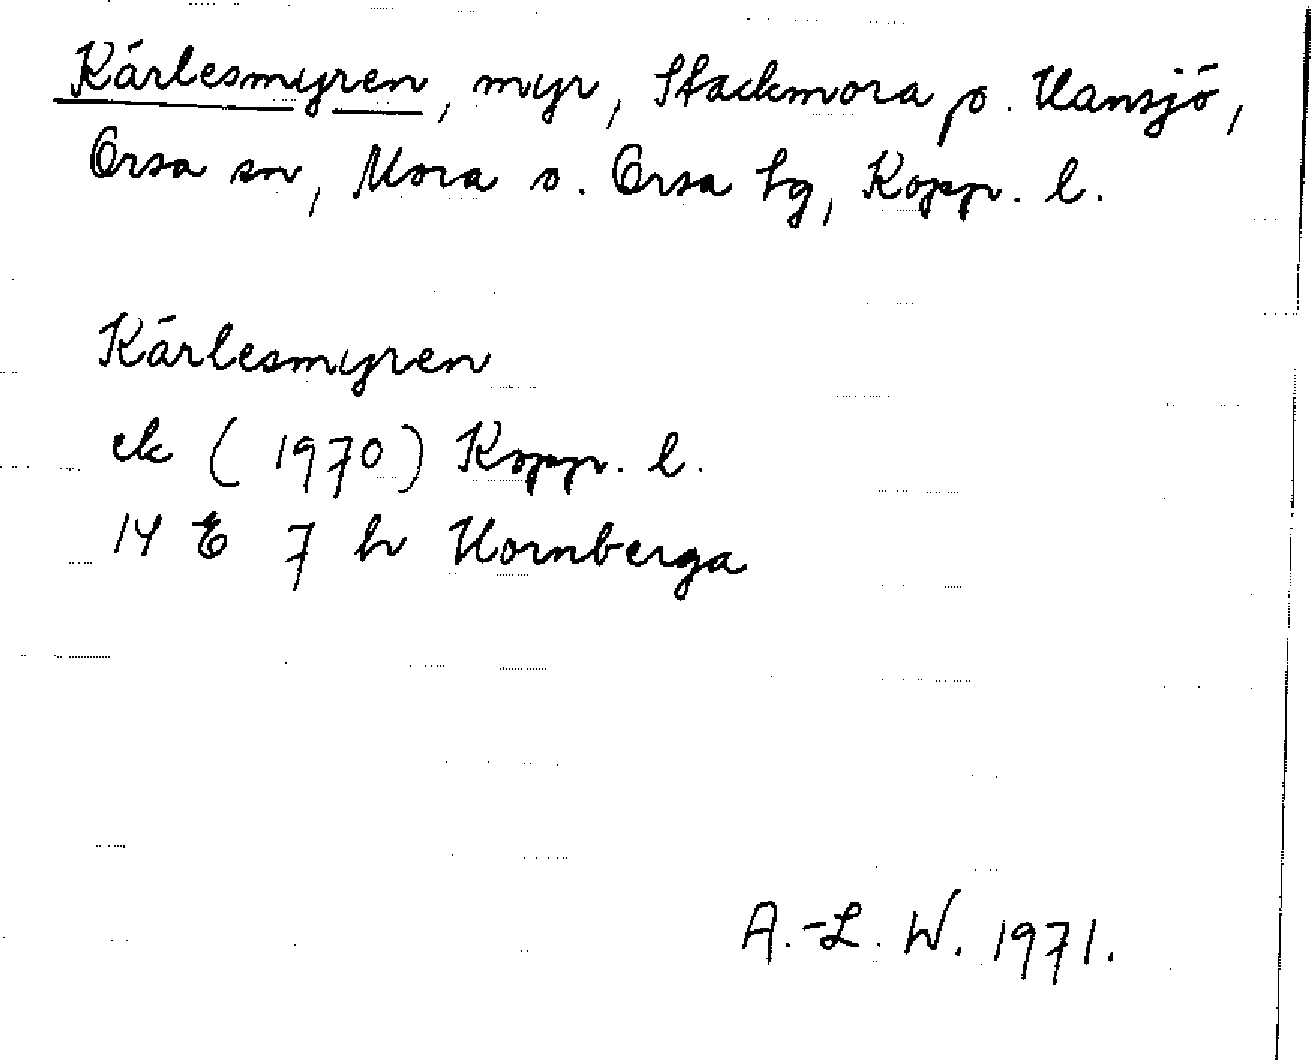 Kärlesmyren, myr, Stackmora o. Hansjö,
Orsa sn, Mora o. Orsa tg, Kopp. l.
Kärlesmyren
ek (1970) Kopp. l.
14 E 7 h Hornberga
A.-L. W. 1971.